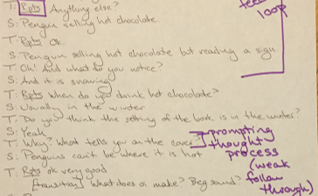 T: Rpts Anything else?
S: Pengun selling hot chocolate.
T: Rpts Ok.
S: Pengun selling hot chocolate but reading a sign
T: Oh! And what do you notice?
S: And it is snowing
T: Rpts When do you drink hot chocolate?
S: Usually in the winter
T: Do you think the setting of the book is in the winter?
S: Yeah
T: Why? What tells you on the cover?
S: Penguins can't be where it is hot
T: Rpts ok very good
[transition] What does or make? Beg sound?
loop
prompting
thought
process
(weak
follow
through)